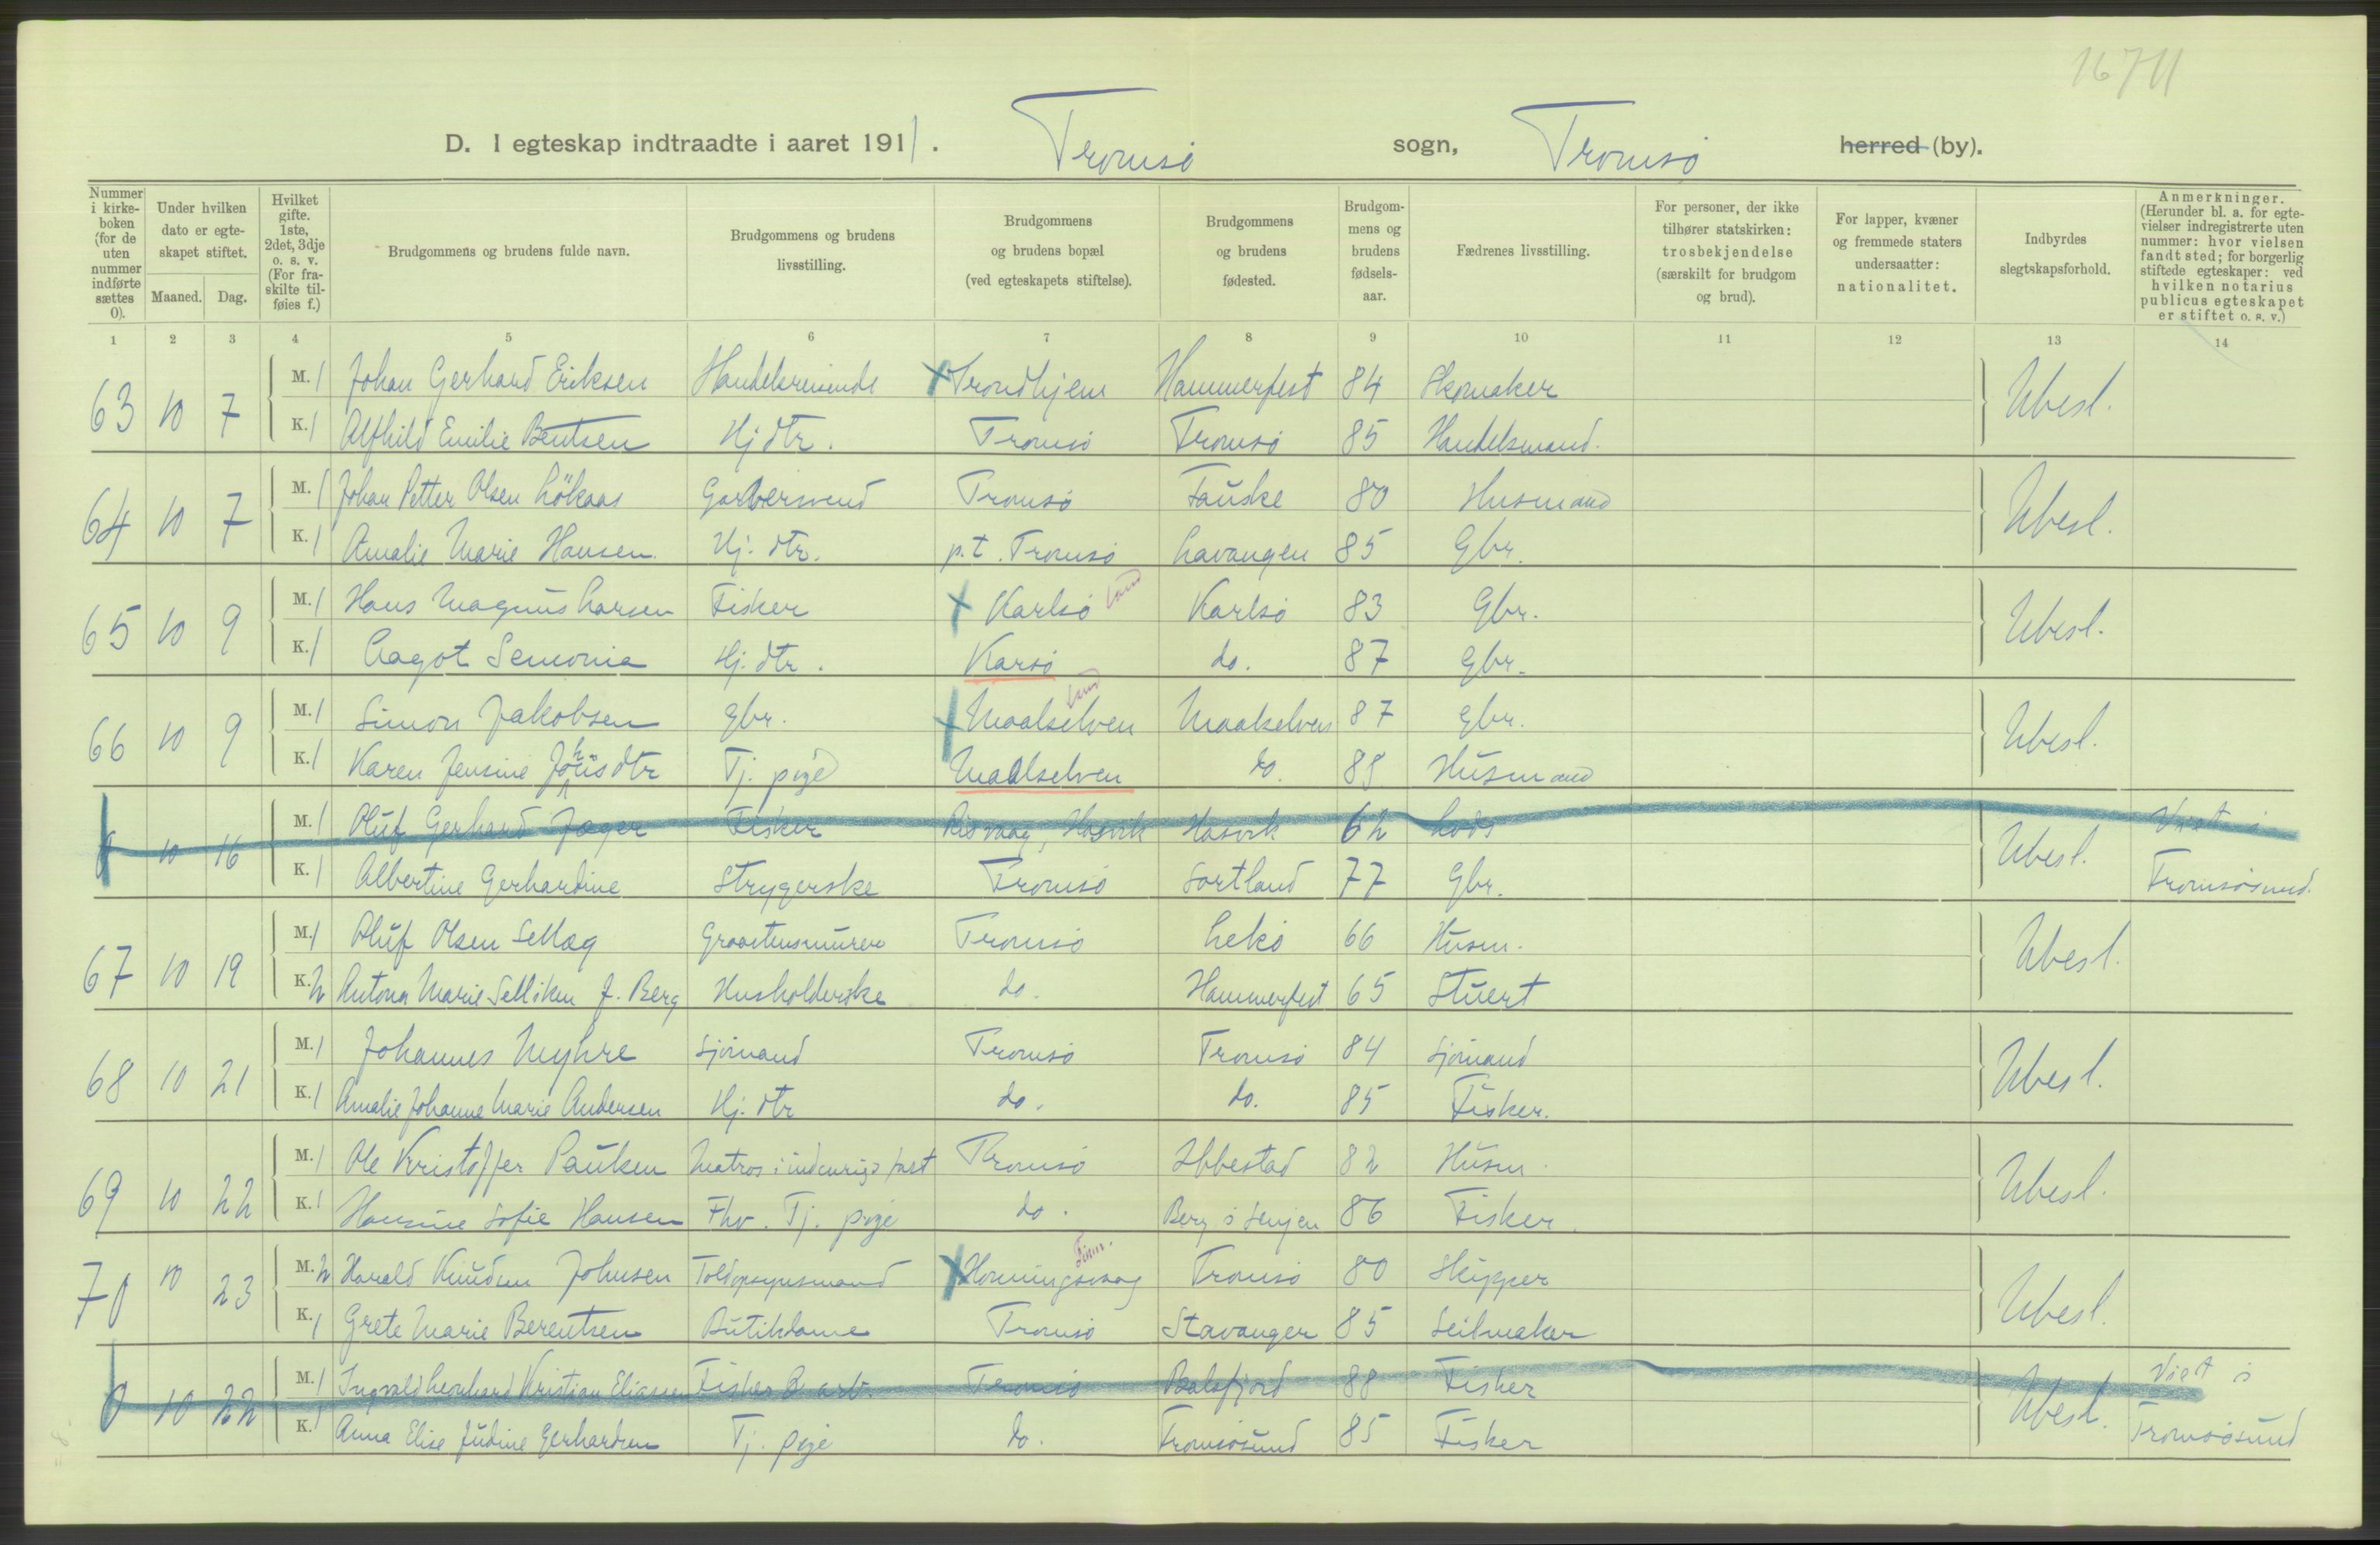 1671
D. I egteskap indtraadte i aaret 1911. Tromsø sogn, Tromsø herred (by).
Nummer i kirkeboken (for de uten nummer indførte sættes 0).
Under hvilken dato er egteskapet stiftet.
Maaned. Dag.
Hvilket gifte. 1ste, 2det, 3dje o. s. v. (For fraskilte tilføies f.)
Brudgommens og brudens fulde navn.
Brudgommens og brudens livsstilling.
Brudgommens og brudens bopæl (ved egteskapets stiftelse).
Brudgommens og brudens fødested.
Brudgommens og brudens fødselsaar.
Fædrenes livsstilling.
For personer, der ikke tilhører statskirken: trosbekjendelse (særskilt for brudgom og brud).
For lapper, kvæner og fremmede staters undersaatter: nationalitet.
Indbyrdes slegtskapsforhold.
Anmerkninger. (Herunder bl. a. for egtevielser indregistrerte uten nummer: hvor vielsen fandt sted; for borgerlig stiftede egteskaper: ved hvilken notarius publicus egteskapet er stiftet o. s. v.)
1 2 3 4 5 6 7 8 9 10 11 12 13 14
63 10 7 M. 1 Johan Gerhard Eriksen Handelsreisende Trondhjem Hammerfest 84 Skomaker Ubesl.
K. 1 Alfhild Emilie Bentsen Hj dtr. Tromsø Tromsø 85 Handelsmand.
64 10 7 M. 1 Johan Petter Olsen Løkaas Garversvend Tromsø Fauske 80 Husmand Ubesl.
K. 1 Amalie Marie Hansen. Hj. dtr. p.t. Tromsø Lavangen 85 Gbr.
65 10 9 M. 1 Hans Magnus Larsen Fisker Karlsø land Karlsø 83 Gbr. Ubesl.
K. 1 Aagot Semonia Hj. dtr. Karsø do. 87 Gbr.
66 10 9 M. 1 Simon Jakobsen Gbr. Maalselven land Maalselven 87 Gbr. Ubesl.
K. 1 Karen Jensine Johnsdtr Tj. pige Maalselven do. 88 Husmand
0 10 16 M. 1 Oluf Gerhard Jæger Fisker Risvaag, Hasvik Hasvik 62 Lods Ubesl. Viet i
K. 1 Albertine Gerhardine Strygerske Tromsø Sortland 77 Gbr. Tromsøsund.
67 10 19 M. 1 Oluf Olsen Sellæg Graastensmurer Tromsø Lekø 66 Husm. Ubesl.
K. 2 Antona Marie Selliken f. Berg Husholderske do. Hammerfest 65 Stuert
68 10 21 M. 1 Johannes Myhre Sjømand Tromsø Tromsø 84 Sjømand Ubesl.
K. 1 Amalie Johanne Marie Andersen Hj. dtr do. do. 85 Fisker.
69 10 22 M. 1 Ole Kristoffer Paulsen Matros i indenrigs fart Tromsø Ibbestad 82 Husm. Ubesl.
K. 1 Hansine Sofie Hansen Fhv. Tj. pige do. Berg i Senjen 86 Fisker.
70 10 23 M. 2 Harald Knudsen Johnsen Toldopsynsmand Honningsvaag Finm. Tromsø 80 Skipper Ubesl.
K. 1 Grete Marie Berentsen Butikdame Tromsø Stavanger 85 Seilmaker
0 10 22 M. 1 Ingvald Leonhard Kristian Eliassen Fisker & arb. Tromsø Balsfjord 88 Fisker Ubesl. Viet i
K. 1 Anna Elise Judine Gerhardsen Tj. pige do. Tromsøsund 85 Fisker Tromsøsund